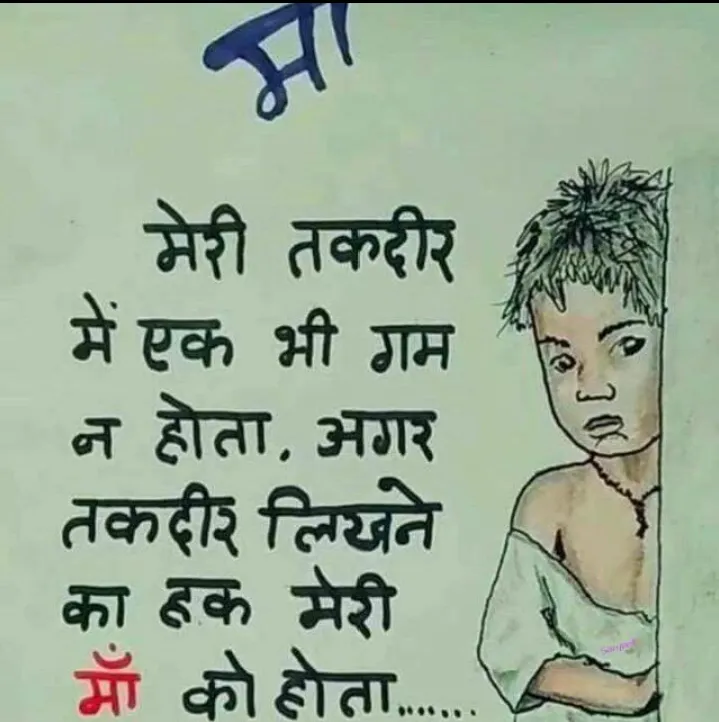 माँ
मेरी तकदीर
में एक भी गम
न होता, अगर
तकदीर लिखने
का हक मेरी
माँ को होता.......